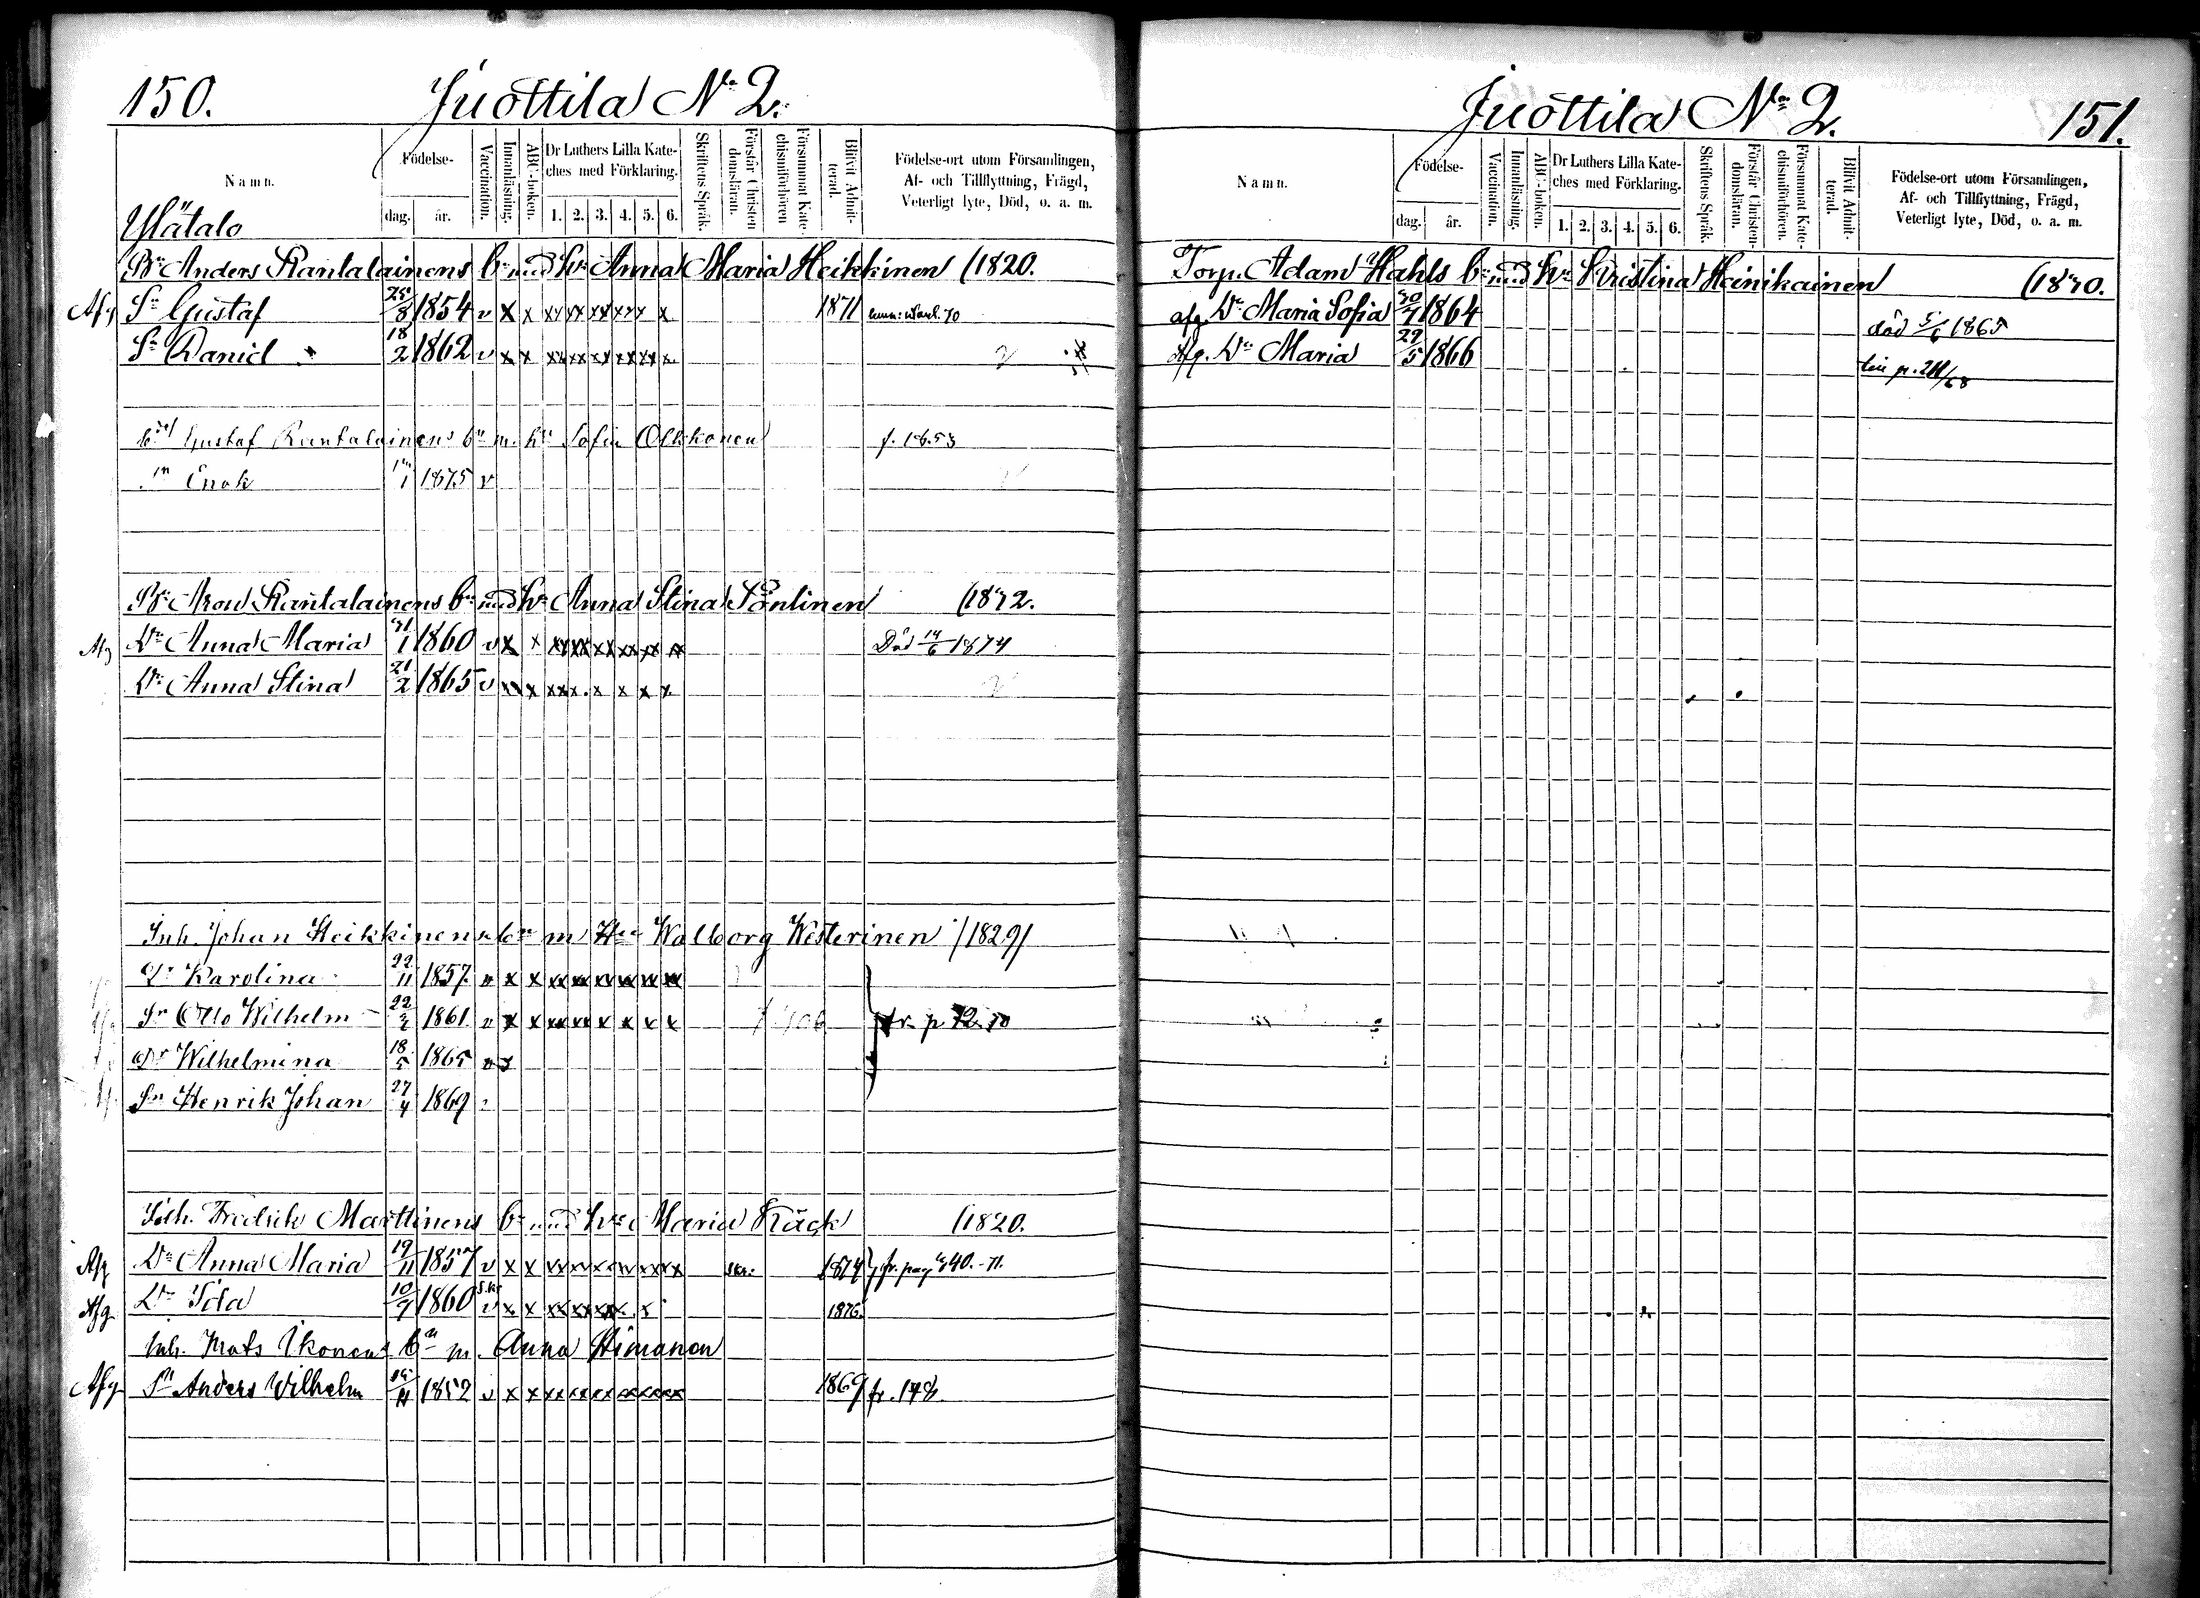 150. Juottila No 2.
Namn.
Födelse-
dag. år.
Vaccination.
Innanläsning.
ABC-boken.
Dr Luthers Lilla Kate-
ches med Förklaring.
1. 2. 3. 4. 5. 6.
Skriftens Språk.
Förstår Christen
domsläran.
Försummat Kate-
chismiförhören
Blifvit Admit-
terad.
Födelse-ort utom Församlingen,
Af- och Tillflyttning, Frägd,
Veterligt lyte, Död, o. a. m.
Ylätalo
Bn Anders Rantalainens bn med hu Anna Maria Heikkinen (1820.
Afg Sn Gustaf 25/8 1854 v x x xx xx xx xxx x 1871
Sn Daniel 18/2 1862 v x x xx xx xx xx xx x
Gustaf Rantalainens bn m. hu Sofia Olkkonen f. 1853
Sn Enok 1875 v
Bn Aron Rantalainens bn med hu Anna Stina Pöntinen (1832.
Afg Dr Anna Maria 31/1 1860 v x x xx xx xx xx xx xx Död 14/6 1874
Dr Anna Stina 21/2 1865 v xx x xx x. x x x x
Inh. Johan Heikkinens bn m Hu Walborg Westerinen /1829/
Dr Karolina 22/11 1857 v x x xx xx xx xx xx xx
Sn Otto Wilhelm 22/2 1861 v x x xx xx x x x x fr. p 72. 70
Dr Wilhelmina 18/5 1865 v
Sn Henrik Johan 27/4 1869
Inh. Fredrik Marttinens bn med hu Maria Räck (1820.
Afg Dr Anna Maria 19/11 1857 v x x xx xx xx xx xx 1874 fr. pag 40.-71.
Afg Dr Ida 10/7 1860 v x x xx xx xx x. x 1876.
Inh. Mats Ikonens bn m. Anna Himanen
Afg Sn Anders Wilhelm 1852 v x x xx xx xx xx xx xx 1869 fr. 148.
Juottila No 2. 151.
Namn.
Födelse-
dag. år.
Vaccination.
Innanläsning.
ABC-boken.
Dr Luthers Lilla Kate-
ches med Förklaring.
1. 2. 3. 4. 5. 6.
Skriftens Språk.
Förstår Christen-
domsläran.
Försummat Kate-
chismiförhören.
Blifvit Admit-
terad.
Födelse-ort utom Församlingen,
Af- och Tillflyttning, Frägd,
Veterligt lyte, Död, o. a. m.
Torp. Adam Hahls bn med hu Kristina Heinikainen (1840.
afg. Dr Maria Sofia 30/7 1864 död 5/6 1865
Afg. Dr Maria 29/5 1866